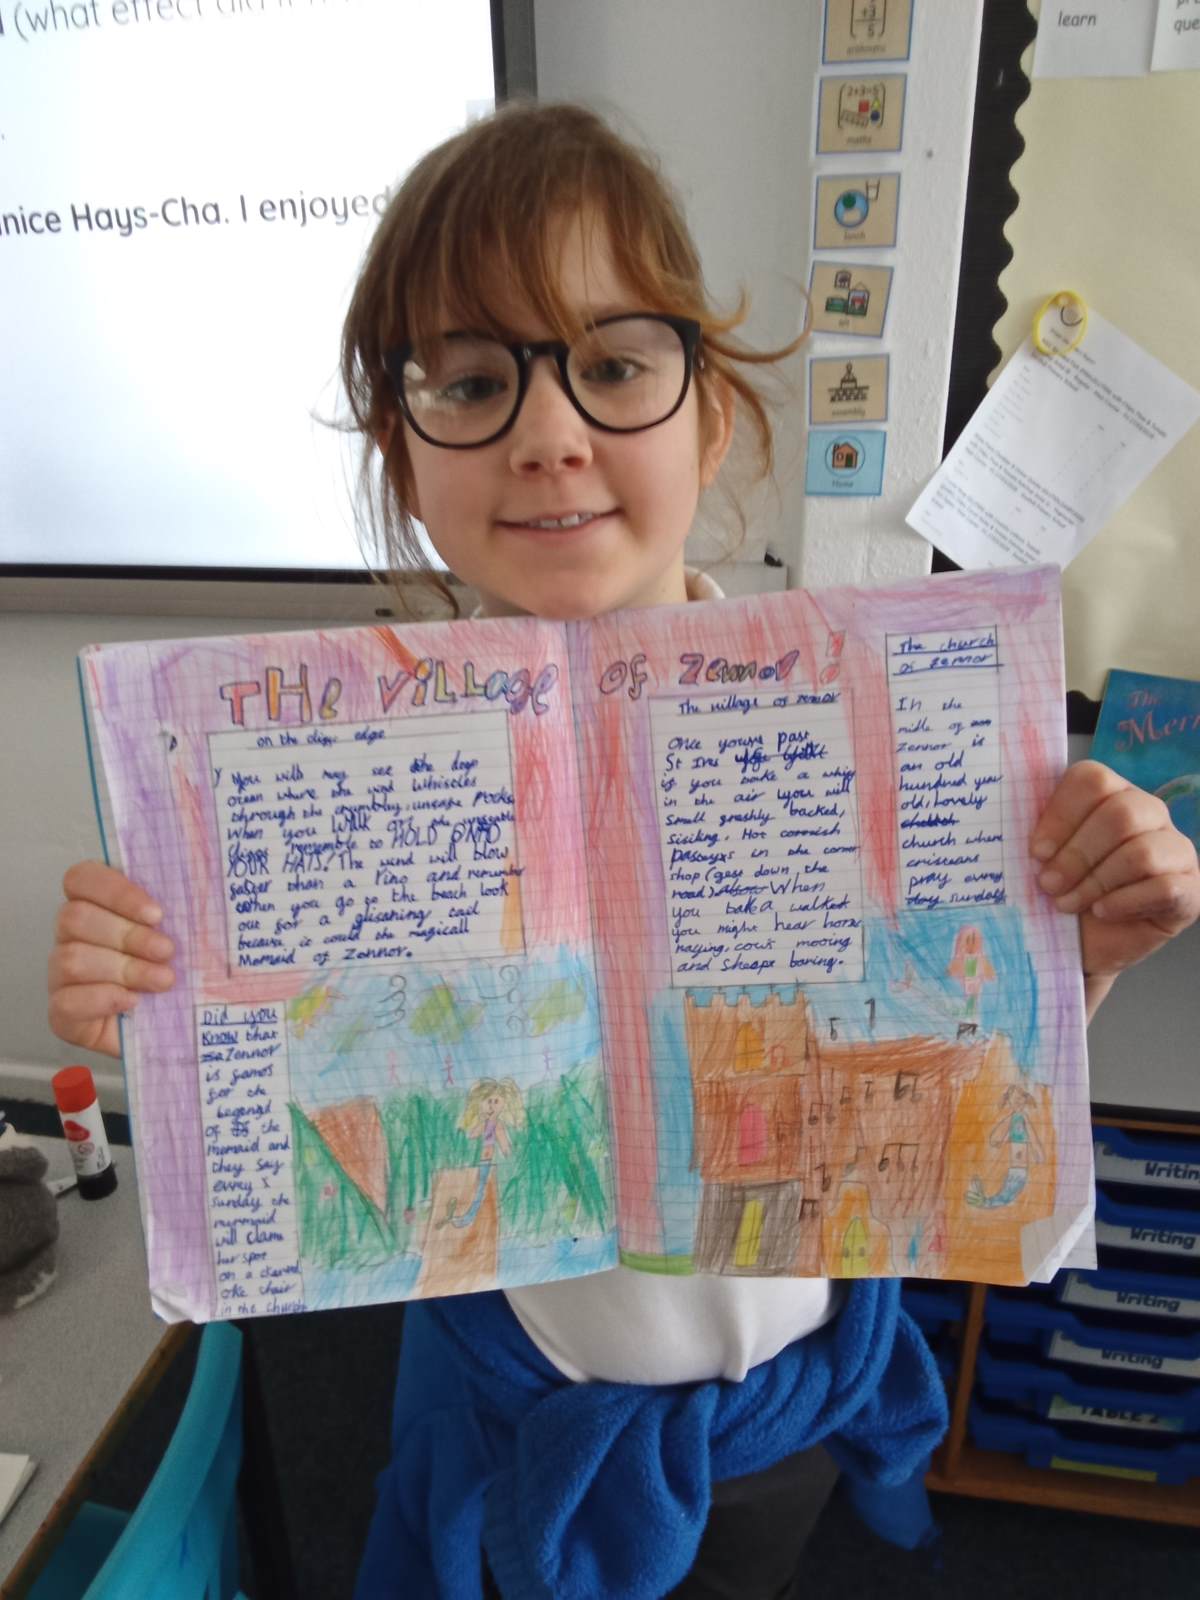 (what effect did it
nice Hays-Cha. I enjoyed
arithmetic
2+3=5
maths
lunch
art
assembly
Home
learn
que
The
Mer
THE VILLAGE OF Zennor!
on the cligg edge
You will may see the deep
ocean where the wind whistles
through the crumbley, unsafe rocks
When you WALK on the unstable
cliggs remember to HOLD ONTO
YOUR HATS! The wind will blow
gaster than a rino and remember
when you go to the beach look
out for a glisaning tail
because it could the magicall
Mermaid of Zennor.
Did you
know that
Zennor
is gamos
for the
legengd
of the
mermaid and
they say
evrey
sunday the
mermaid
will clame
her spot
on a charved
oke chair
in the church
The village of zennor
Once youve past
St Ives
if you take a whiff
in the air you will
Small greshly backed,
Sisiling, Hot cornish
pasteys in the corner
shop (gess down the
road) When
you take a walked
you might hear horse
naying, cows mooing
and sheaps baring.
The church
of zennor
In the
midle of
zennor is
an old
hundred year
old, lovely
church where
cristeans
pray evrey
day sunday
Writing
Writing
Writing
Writing
TABLE 2